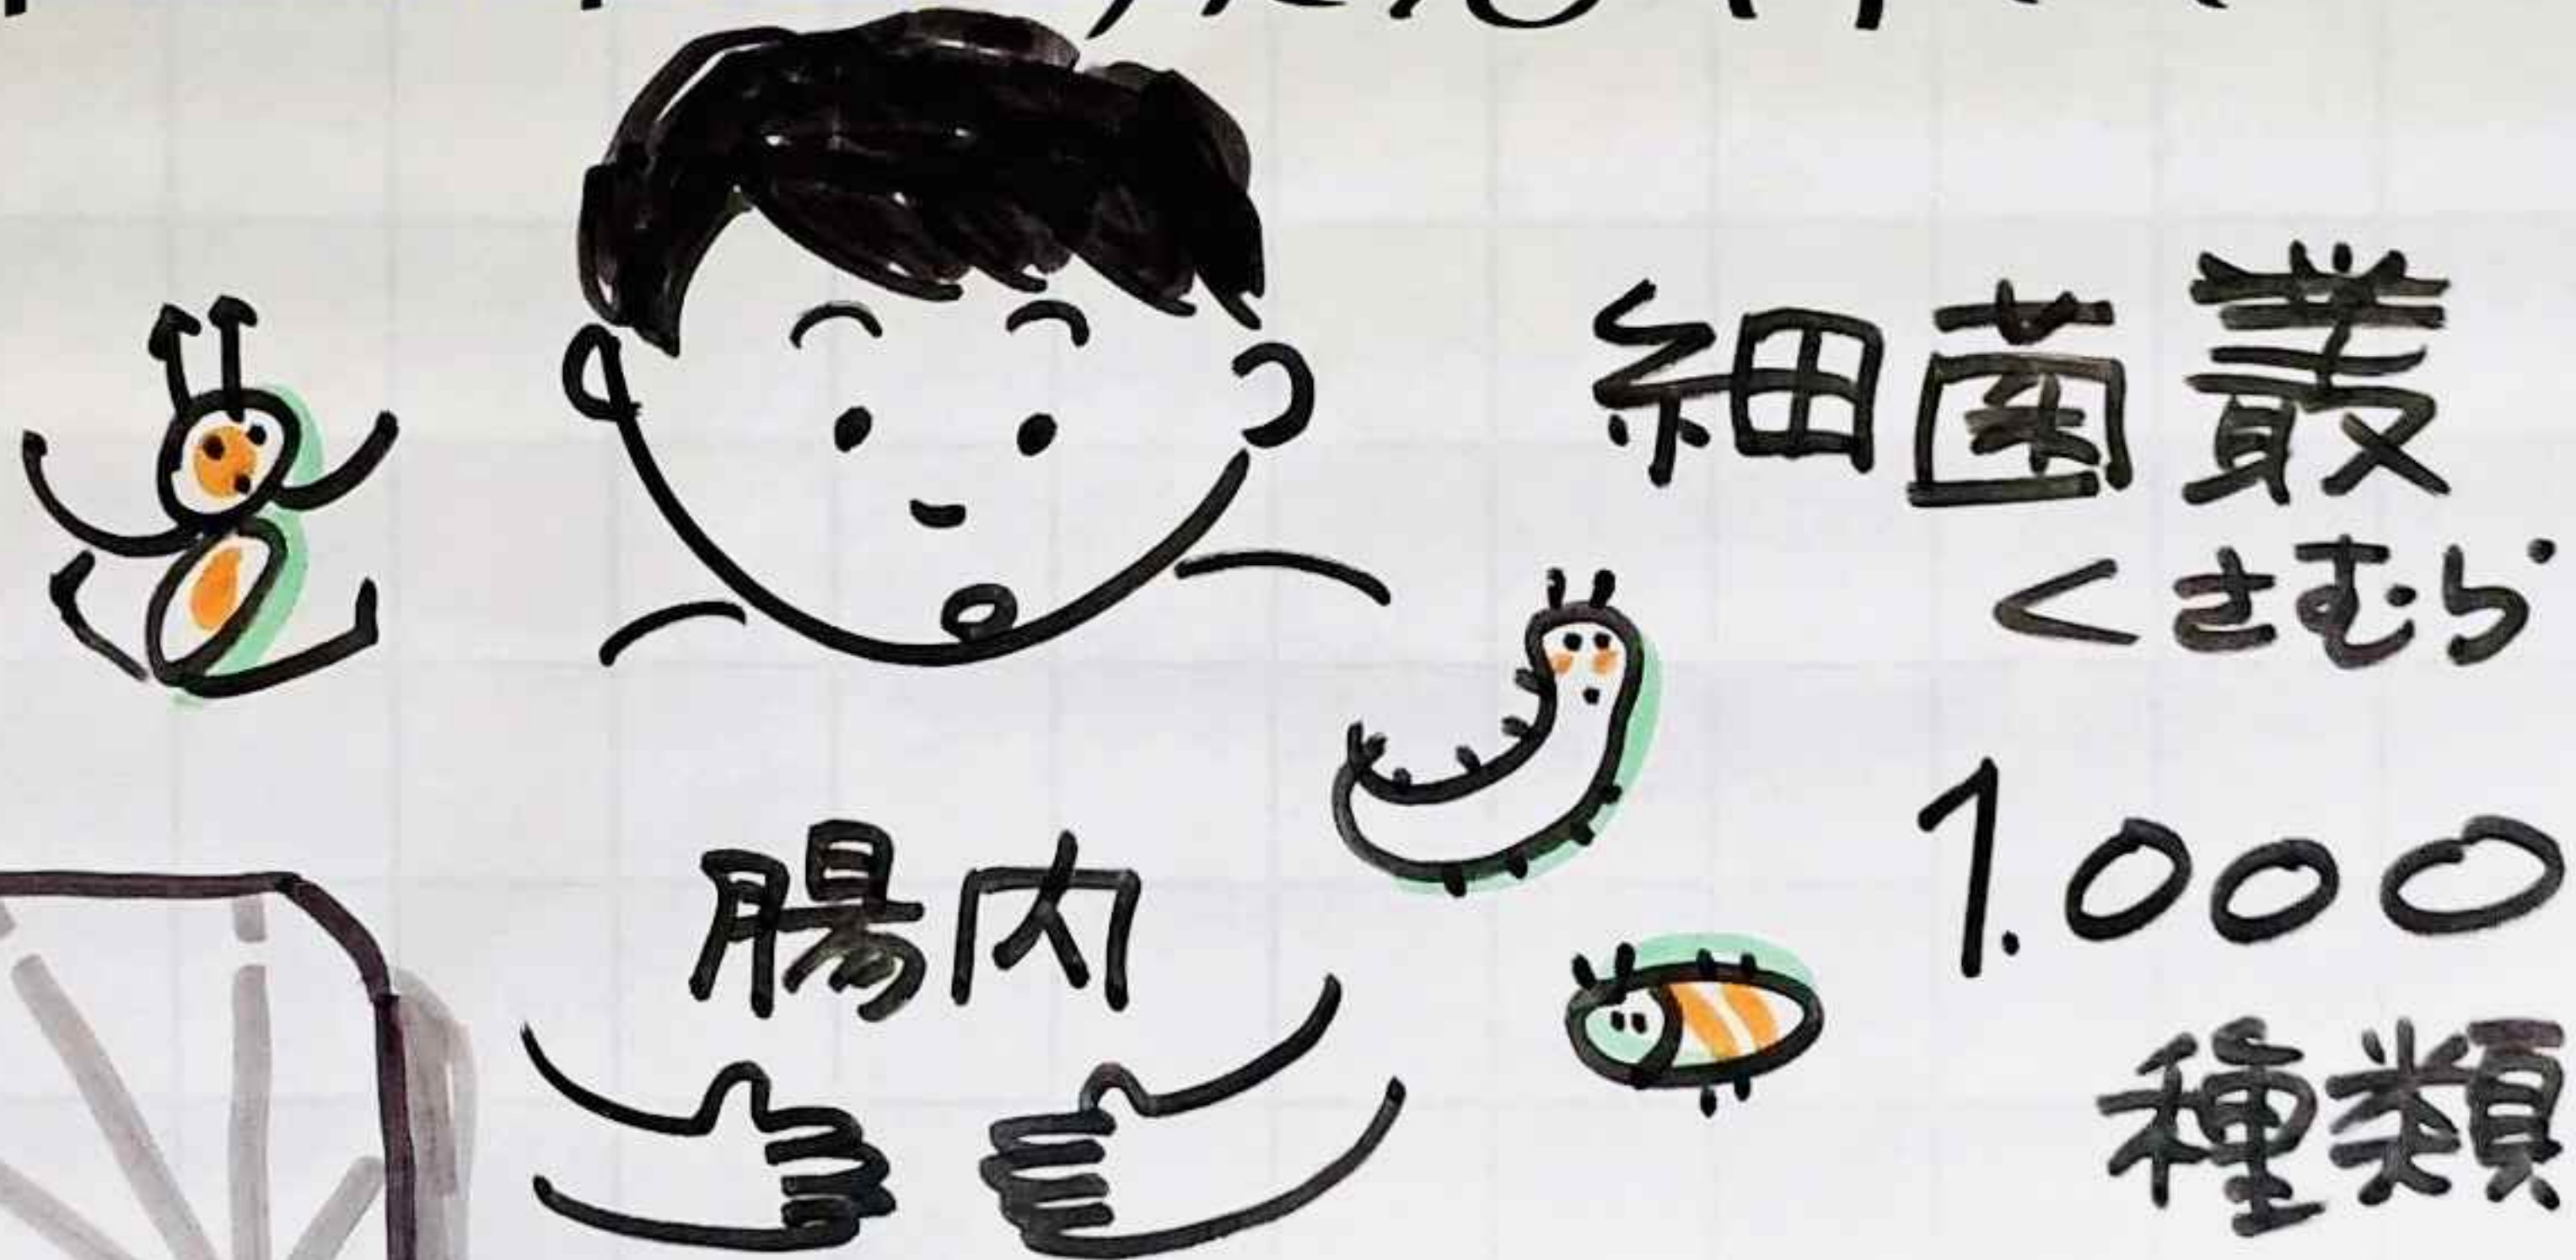 細菌叢
くさむら
腸内
1.000
種類